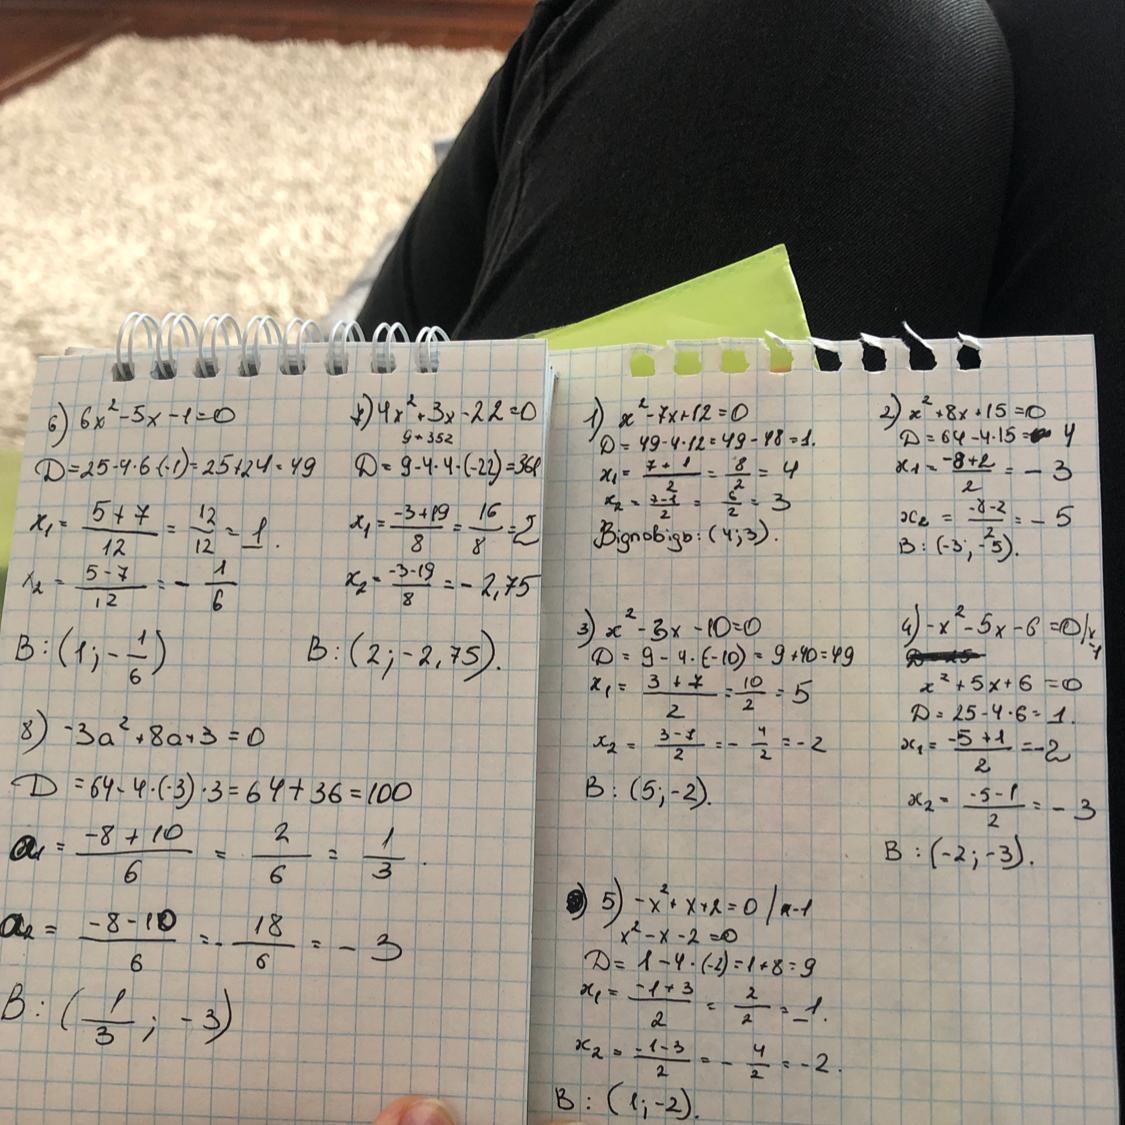 6) 6x² - 5x - 1 = 0
D = 25 - 4·6·(-1) = 25 + 24 = 49
x₁ = (5 + 7)/12 = 12/12 = 1.
x₂ = (5 - 7)/12 = - 1/6
В: (1; - 1/6)
7) 4x² + 3x - 22 = 0
9 + 352
D = 9 - 4·4·(-22) = 361
x₁ = (-3 + 19)/8 = 16/8 = 2
x₂ = (-3 - 19)/8 = - 2,75
В: (2; -2,75).
8) -3a² + 8a + 3 = 0
D = 64 - 4·(-3)·3 = 64 + 36 = 100
a₁ = (-8 + 10)/6 = 2/6 = 1/3.
a₂ = (-8 - 10)/6 = - 18/6 = - 3
В: (1/3; -3)
1) x² - 7x + 12 = 0
D = 49 - 4·12 = 49 - 48 = 1.
x₁ = (7 + 1)/2 = 8/2 = 4
x₂ = (7 - 1)/2 = 6/2 = 3
Відповідь: (4; 3).
2) x² + 8x + 15 = 0
D = 64 - 4·15 = 4
x₁ = (-8 + 2)/2 = - 3
x₂ = (-8 - 2)/2 = - 5
В: (-3; -5).
3) x² - 3x - 10 = 0
D = 9 - 4·(-10) = 9 + 40 = 49
x₁ = (3 + 7)/2 = 10/2 = 5
x₂ = (3 - 7)/2 = - 4/2 = -2
В: (5; -2).
4) -x² - 5x - 6 = 0 /x -1
x² + 5x + 6 = 0
D = 25 - 4·6 = 1.
x₁ = (-5 + 1)/2 = -2
x₂ = (-5 - 1)/2 = - 3
В: (-2; -3).
5) -x² + x + 2 = 0 /x -1
x² - x - 2 = 0
D = 1 - 4·(-2) = 1 + 8 = 9
x₁ = (-1 + 3)/2 = 2/2 = 1.
x₂ = (-1 - 3)/2 = - 4/2 = -2.
В: (1; -2).